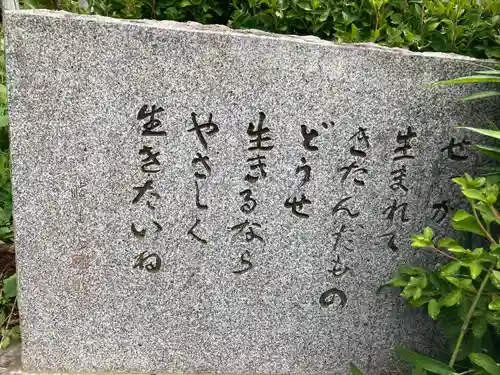 せ か
生まれて
きたんだもの
どうせ
生きるなら
やさしく
生きたいね